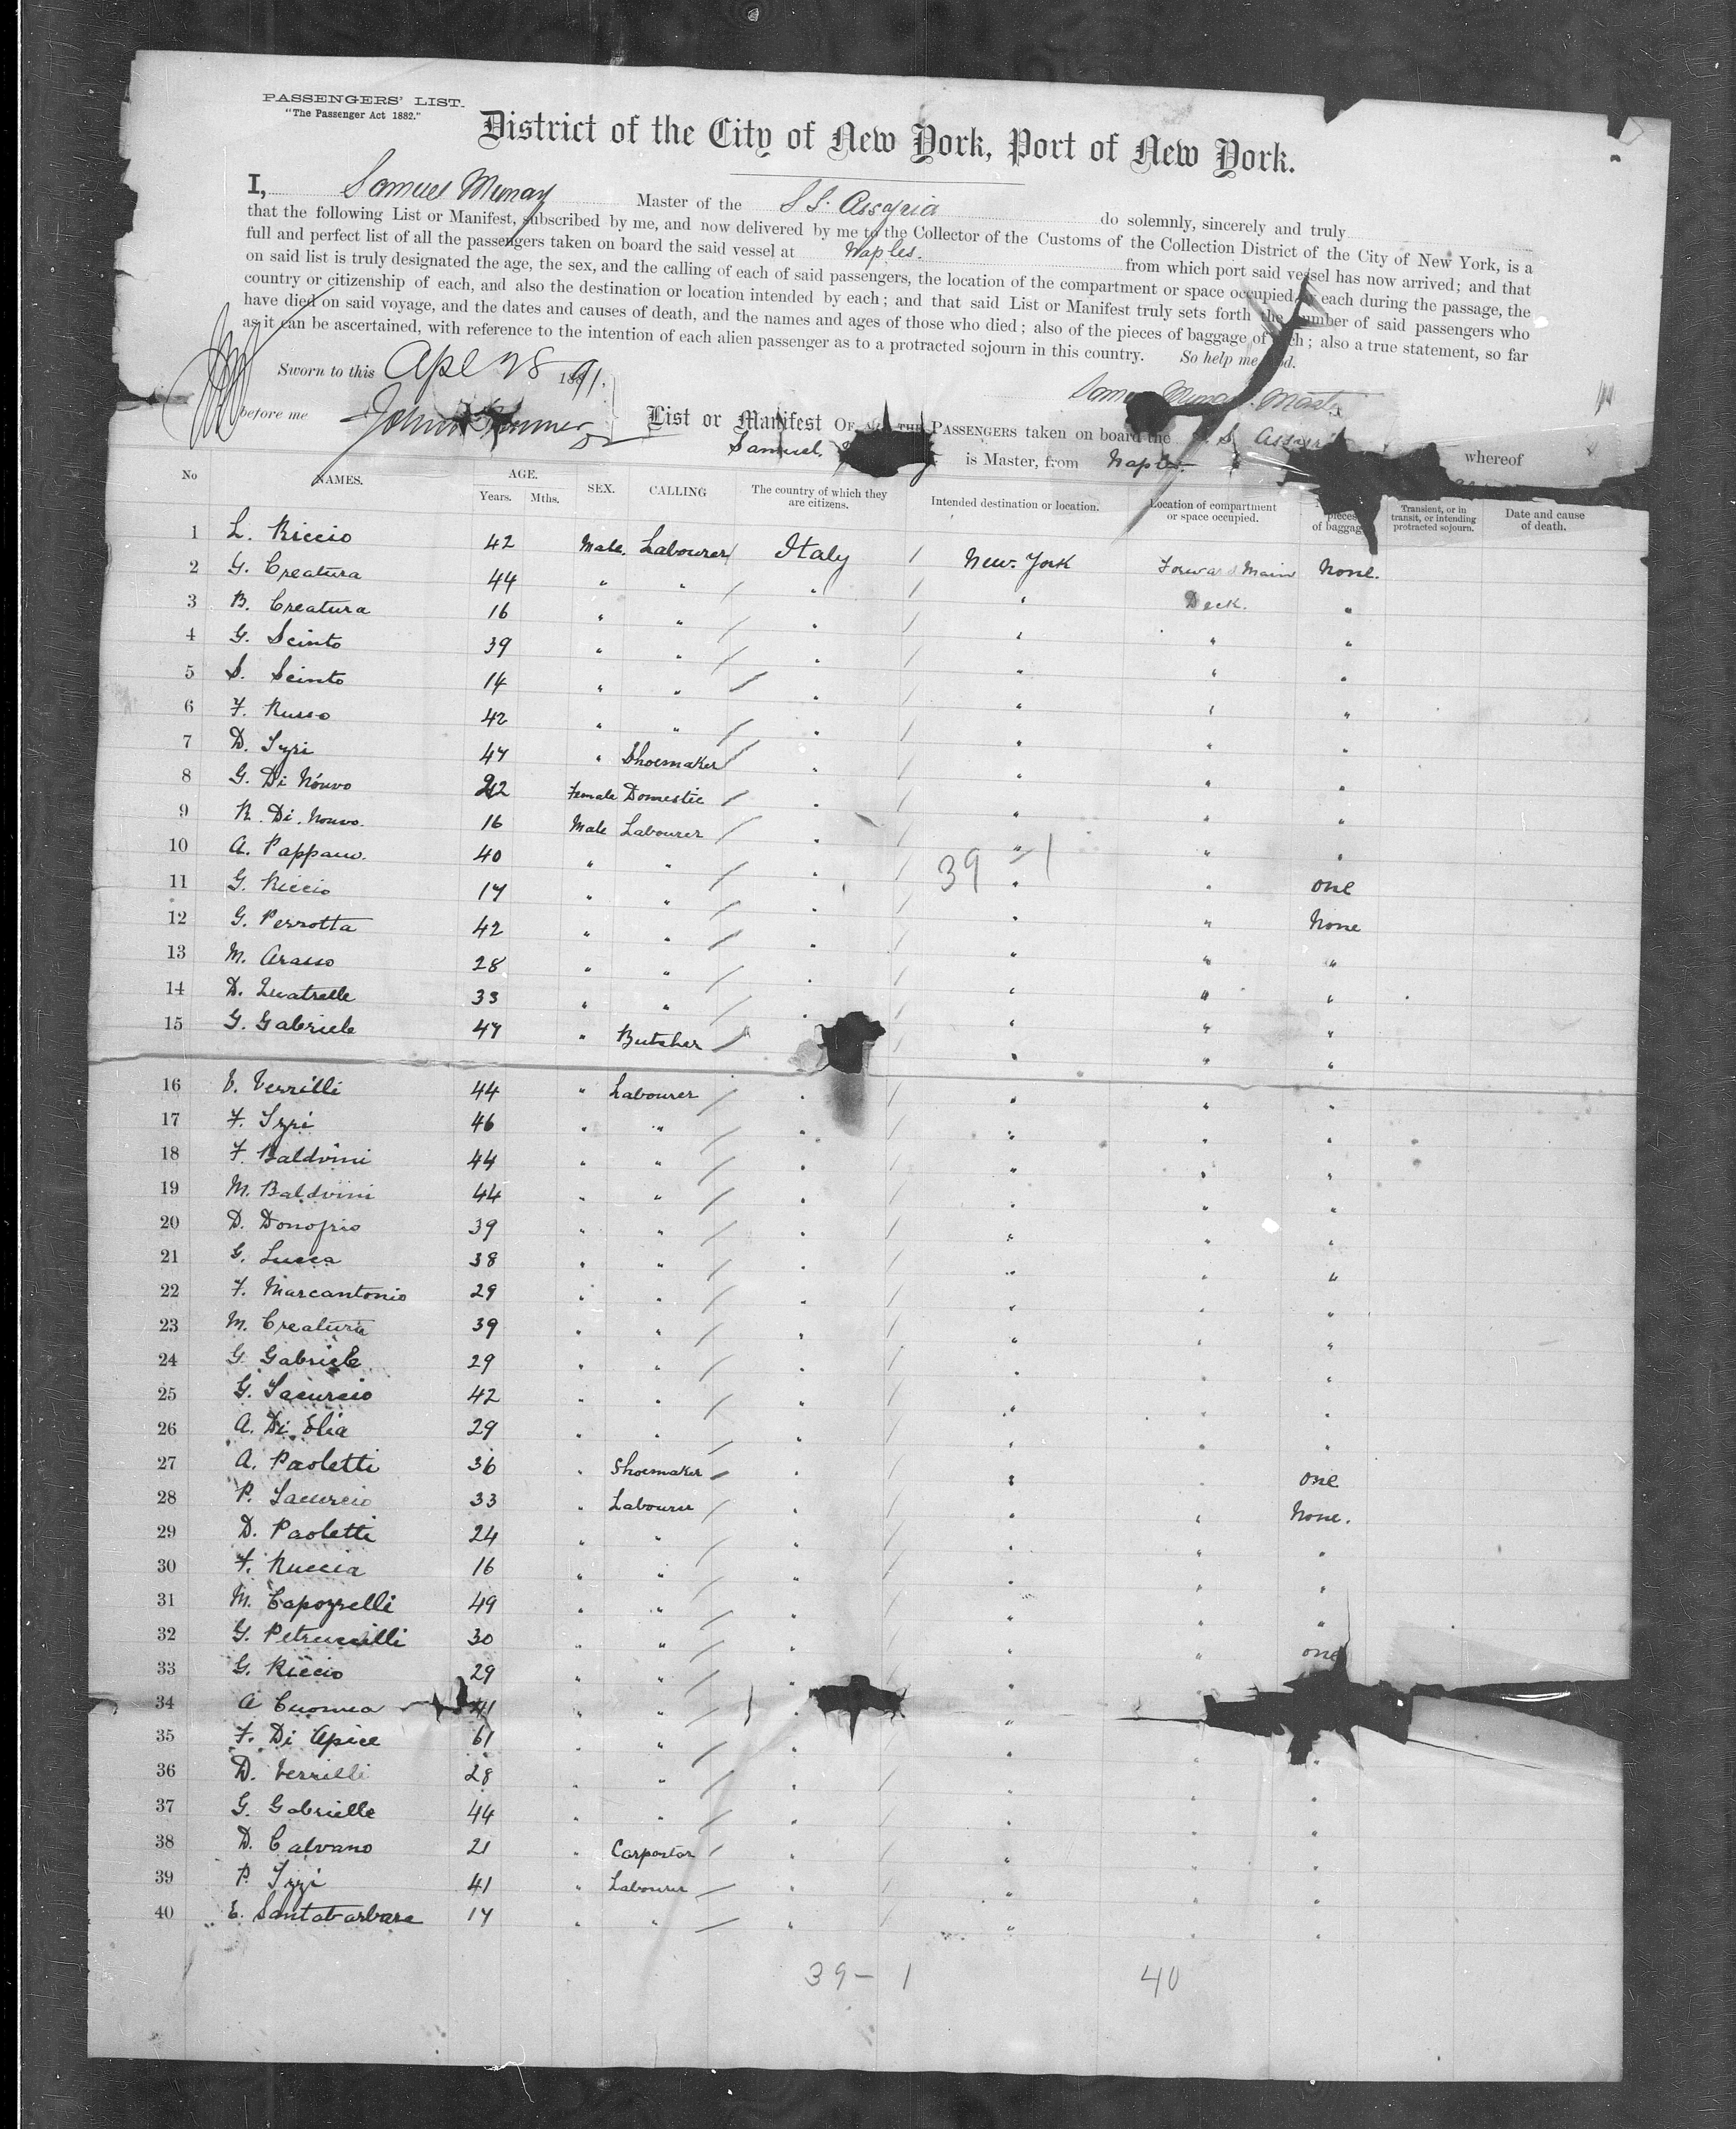 PASSENGERS' LIST.
"The Passenger Act 1882."
District of the City of New York, Port of New York.
I, Samuel Murray Master of the S.S. Assyria do solemnly, sincerely and truly
that the following List or Manifest, subscribed by me, and now delivered by me to the Collector of the Customs of the Collection District of the City of New York, is a
full and perfect list of all the passengers taken on board the said vessel at Naples. from which port said vessel has now arrived; and that
on said list is truly designated the age, the sex, and the calling of each of said passengers, the location of the compartment or space occupied by each during the passage, the
country or citizenship of each, and also the destination or location intended by each; and that said List or Manifest truly sets forth the number of said passengers who
have died on said voyage, and the dates and causes of death, and the names and ages of those who died; also of the pieces of baggage of each; also a true statement, so far
as it can be ascertained, with reference to the intention of each alien passenger as to a protracted sojourn in this country. So help me God.
Sworn to this Apl 28 1891.
Samuel Murray Master
before me John
List or Manifest OF ALL THE PASSENGERS taken on board the S. S. Assyria whereof
Samuel is Master, from Naples.
No NAMES. AGE. Years. Mths. SEX. CALLING The country of which they are citizens. Intended destination or location. Location of compartment or space occupied. pieces of baggage Transient, or in transit, or intending protracted sojourn. Date and cause of death.
1 L. Riccio 42 Male. Labourer Italy New York Forward Main None.
2 G. Creatura 44 " " " " Deck. "
3 B. Creatura 16 " " " " " "
4 G. Scinto 39 " " " " " "
5 S. Scinto 14 " " " " " "
6 F. Russo 42 " " " " " "
7 D. Izzi 47 " Shoemaker " " " "
8 G. Di Nonvo 42 Female Domestic " " " "
9 R. Di. Nonvo. 16 Male Labourer " " " "
39 - 1
10 A. Pappano. 40 " " " " " "
11 G. Riccio 17 " " " " " one
12 G. Perrotta 42 " " " " " None
13 M. Arasso 28 " " " " " "
14 D. Quatrelle 33 " " " " " "
15 G. Gabriele 47 " Butcher " " " "
16 V. Verrilli 44 " Labourer " " " "
17 F. Izzi 46 " " " " " "
18 F. Baldvini 44 " " " " " "
19 M. Baldvini 44 " " " " " "
20 D. Donofrio 39 " " " " " "
21 G. Lucca 38 " " " " " "
22 F. Marcantonio 29 " " " " " "
23 M. Creatura 39 " " " " " "
24 G. Gabriele 29 " " " " " "
25 G. Iacurcio 42 " " " " " "
26 A. Di Elia 29 " " " " " "
27 A. Paoletti 36 " Shoemaker " " " one
28 P. Iacurcio 33 " Labourer " " " None.
29 D. Paoletti 24 " " " " " "
30 F. Ruccia 16 " " " " " "
31 M. Capozzelli 49 " " " " " "
32 G. Petruccilli 30 " " " " " one
33 G. Riccio 29 " " " "
34 A Cuomea 41 " " " "
35 F. Di Apice 61 " " " " " "
36 D. Verrilli 28 " " " " " "
37 G. Gabrielle 44 " " " " " "
38 D. Calvano 21 " Carpentar " " " "
39 P. Izzi 41 " Labourer " " " "
40 E. Santabarbara 17 " " " " " "
39 - 1 40